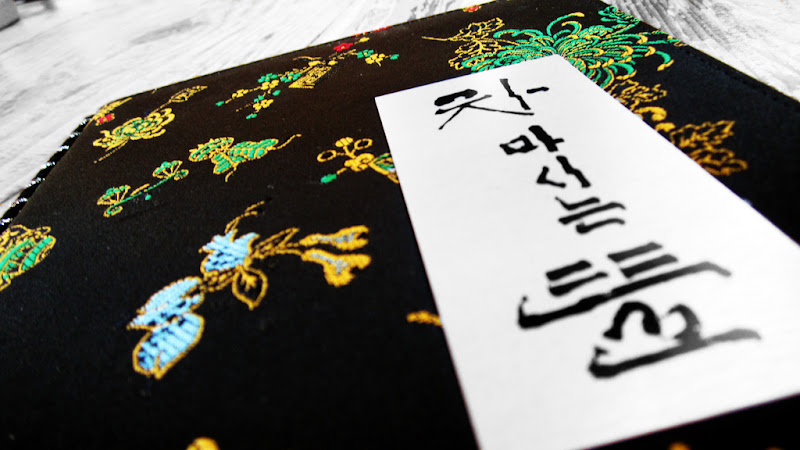 차 마시는 뜰